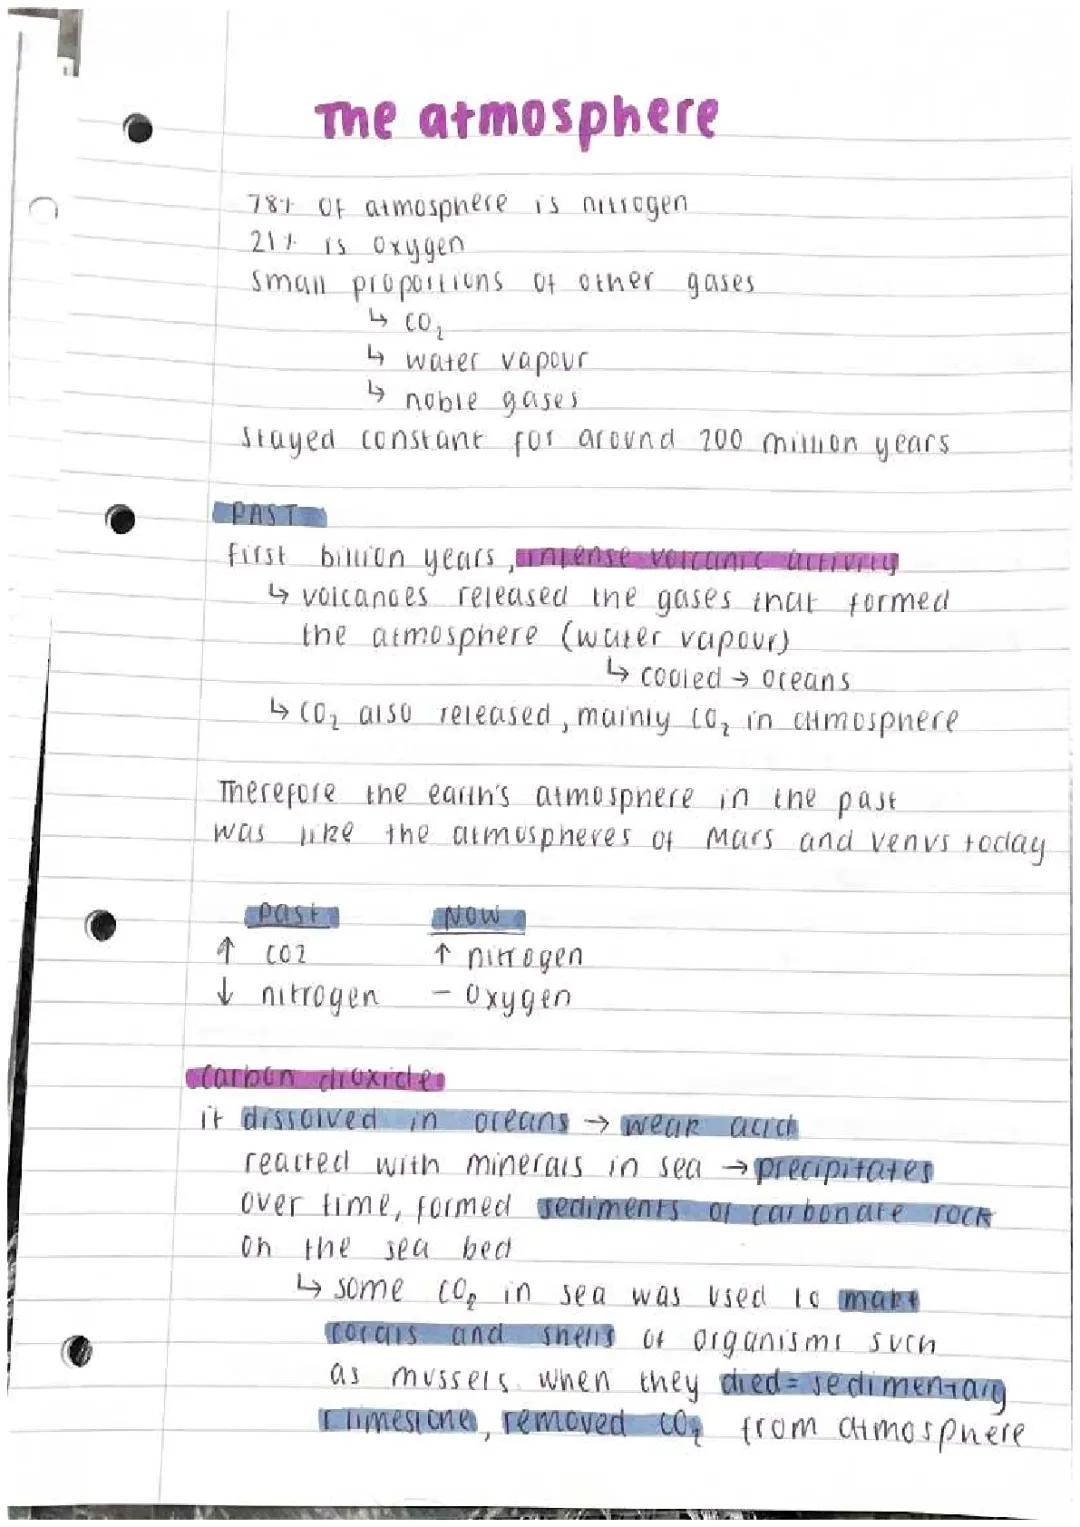 The atmosphere
78% of atmosphere is nitrogen
21% is oxygen
small proportions of other gases
↳ CO₂
↳ water vapour
↳ noble gases
Stayed constant for around 200 million years
PAST
First billion years, intense volcanic activity
↳ volcanoes released the gases that formed
the atmosphere (water vapour)
↳ cooled → oceans
↳ CO₂ also released, mainly CO₂ in atmosphere
Therefore the earth's atmosphere in the past
was like the atmospheres of Mars and Venus today
Past Now
↑ CO2 ↑ nitrogen
↓ nitrogen - Oxygen
Carbon dioxide
it dissolved in oceans → weak acid
reacted with minerals in sea → precipitates
over time, formed sediments of carbonate rock
on the sea bed
↳ some CO₂ in sea was used to make
corals and shells of organisms such
as mussels. when they died = sedimentary
limestone, removed CO₂ from atmosphere